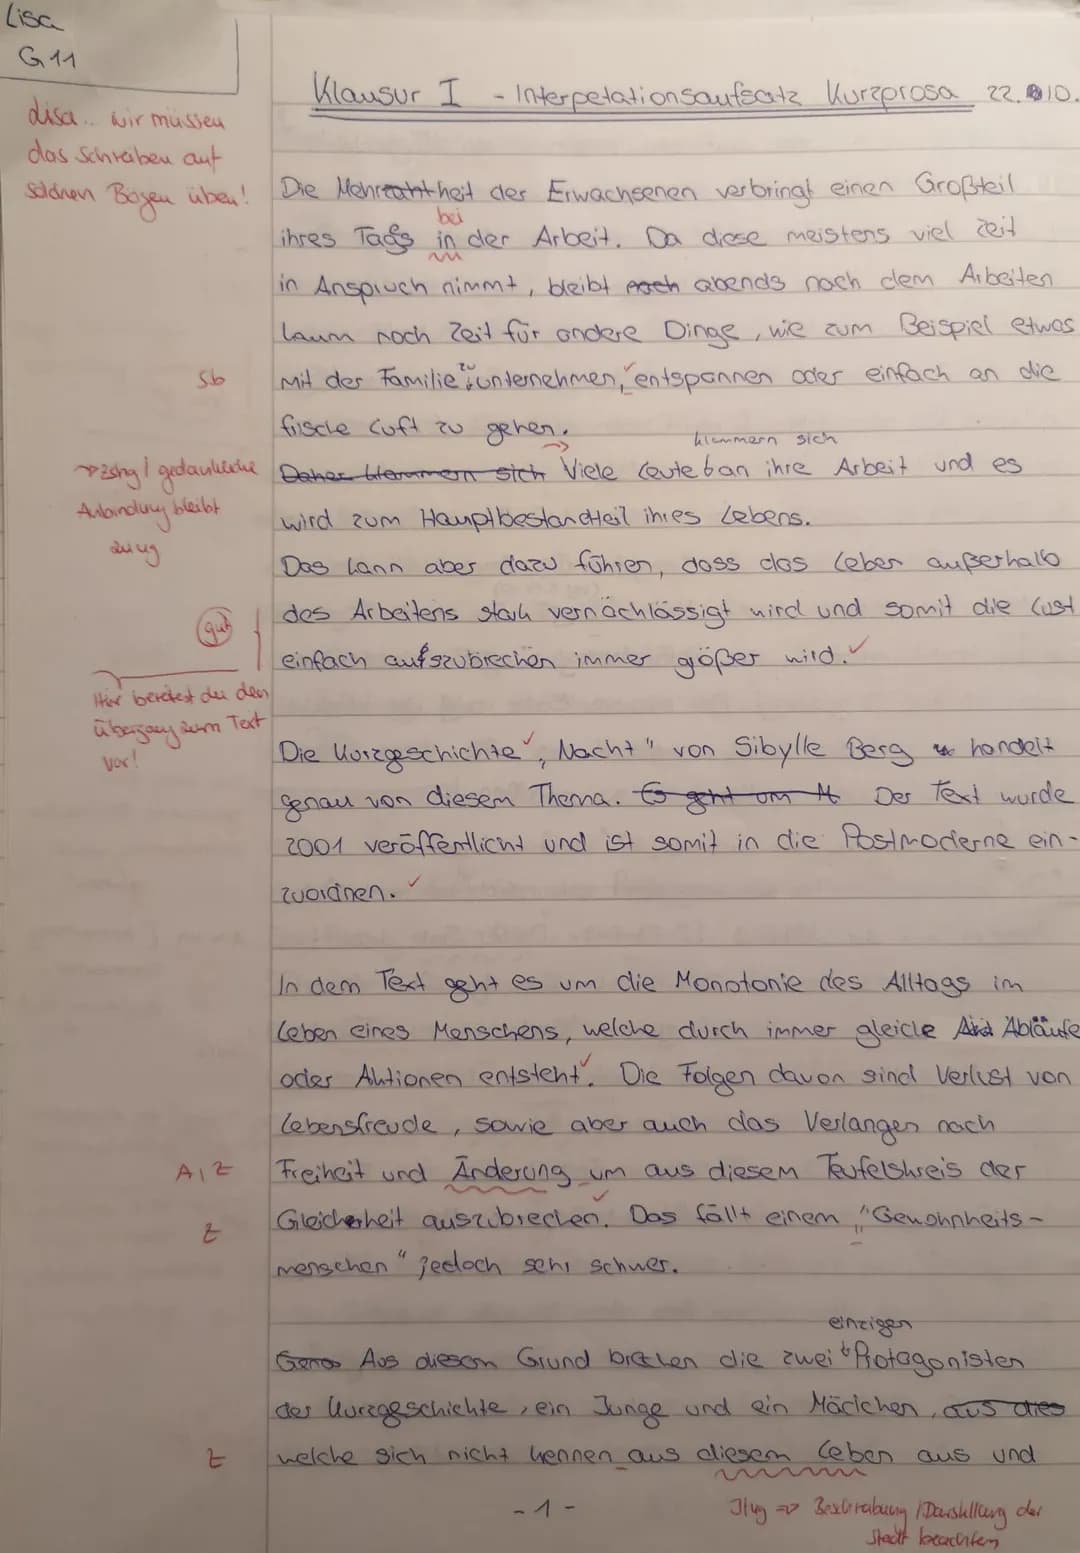 Lisa
G11
Klausur I - Interpetationsaufsatz Kurzprosa 22.10.
Lisa.. wir müssen
das Schreiben auf
solchen Bögen üben!
Die Mehrheit der Erwachsenen verbringt einen Großteil
bei
ihres Tags in der Arbeit. Da diese meistens viel Zeit
in Anspruch nimmt, bleibt noch abends nach dem Arbeiten
kaum noch Zeit für andere Dinge, wie zum Beispiel etwas
Sb
mit der Familie zu unternehmen, entspannen oder einfach an die
frische Luft zu gehen.
klammern sich
Daher klammern sich Viele Leute an ihre Arbeit und es
wird zum Hauptbestandteil ihres Lebens.
→ Zshg / gedankliche
Anbindung bleibt
Das kann aber dazu führen, dass das Leben außerhalb
des Arbeitens stark vernachlässigt wird und somit die Lust
einfach aufszubrechen immer größer wird.
gut
Hier bereitest du den
Übergang zum Text
vor!
Die Kurzgeschichte „Nacht" von Sibylle Berg handelt
genau von diesem Thema. Es geht um Der Text wurde
2001 veröffentlicht und ist somit in die Postmoderne ein-
zuordnen.
In dem Text geht es um die Monotonie des Alltags im
Leben eines Menschens, welche durch immer gleiche Abläufe
oder Aktionen entsteht. Die Folgen davon sind Verlust von
Lebensfreude, sowie aber auch das Verlangen nach
A, Z
Freiheit und Änderung um aus diesem Teufelskreis der
Z
Gleichheit auszubrechen. Das fällt einem "Gewohnheits-
menschen" jedoch sehr schwer.
einzigen
Aus diesem Grund brechen die zwei Protagonisten
der Kurzgeschichte, ein Junge und ein Mädchen, aus dies
Z
welche sich nicht kennen aus diesem Leben aus und
- 1 -
=> Beschreibung / Darstellung der
Stadt beachten